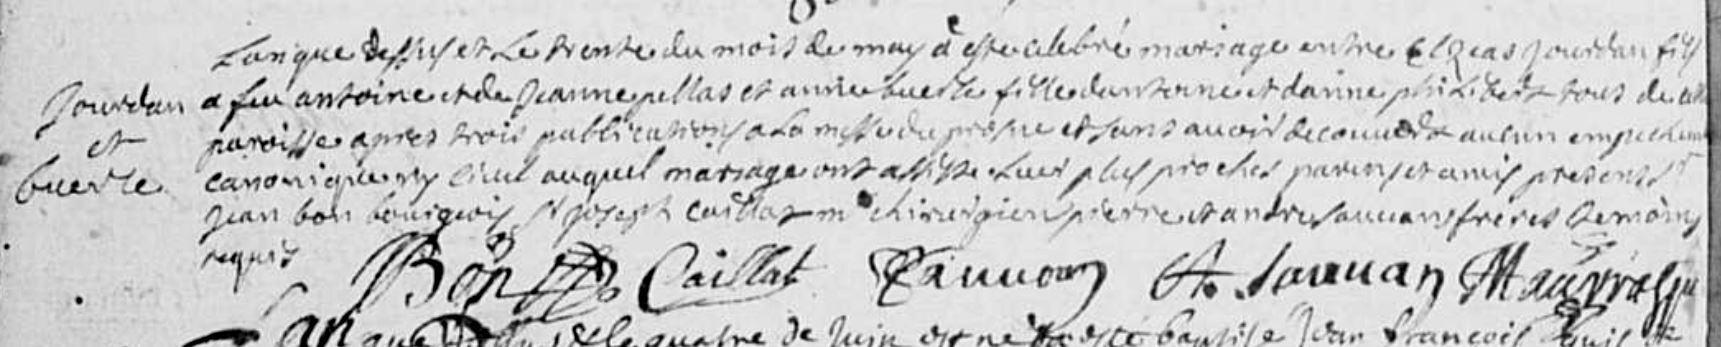 Lan que dessus et Le trente du mois de may a este celebré mariage entre Elzeas Jourdan fils
Jourdan a feu antoine et de Jeanne pellas et anne buerle fille dantoine et danne philibert tous de cette
et paroisse apres trois publications a La messe du prosne et sans avoir decouvert aucun empechement
buerle canonique ny civil auquel mariage ont assisté Leurs plus proches parens et amis presents Sr
Jean bon bourgeois Sr Joseph caillat me chirurgien pierre et andre sauvans freres temoins
requis
Bon Caillat Sauvan A. Sauvan
Lan que dessus & le quatre de Juin est né a esté baptise Jean francois